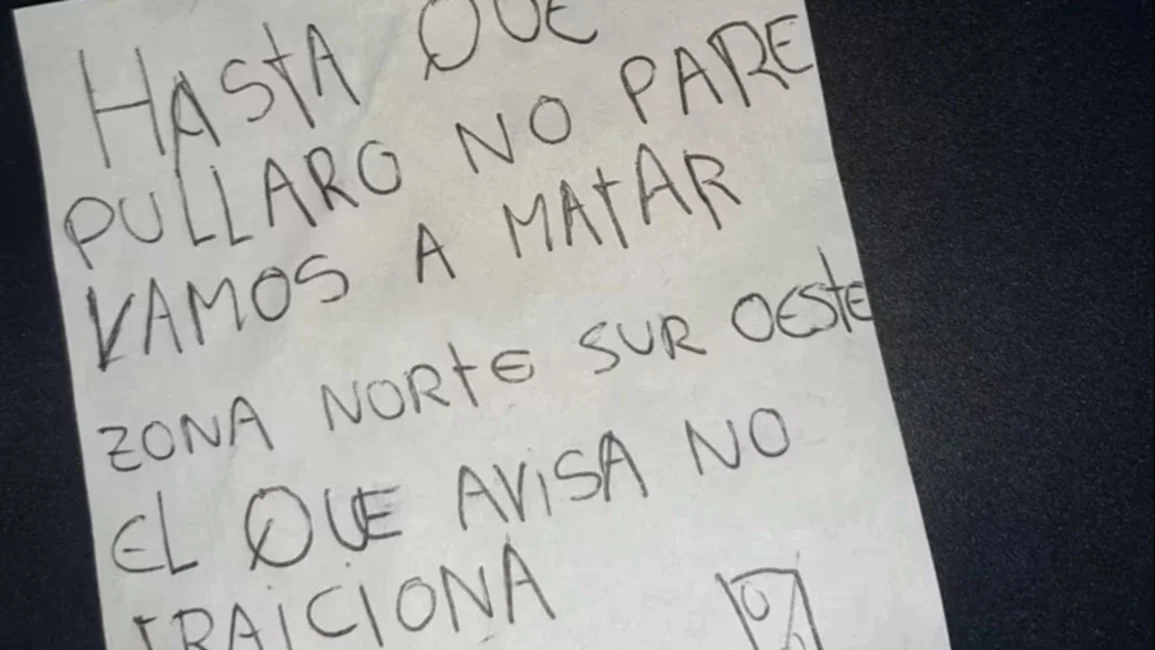 HASTA QUE
PULLARO NO PARE
VAMOS A MATAR
ZONA NORTE SUR OESTE
EL QUE AVISA NO
TRAICIONA